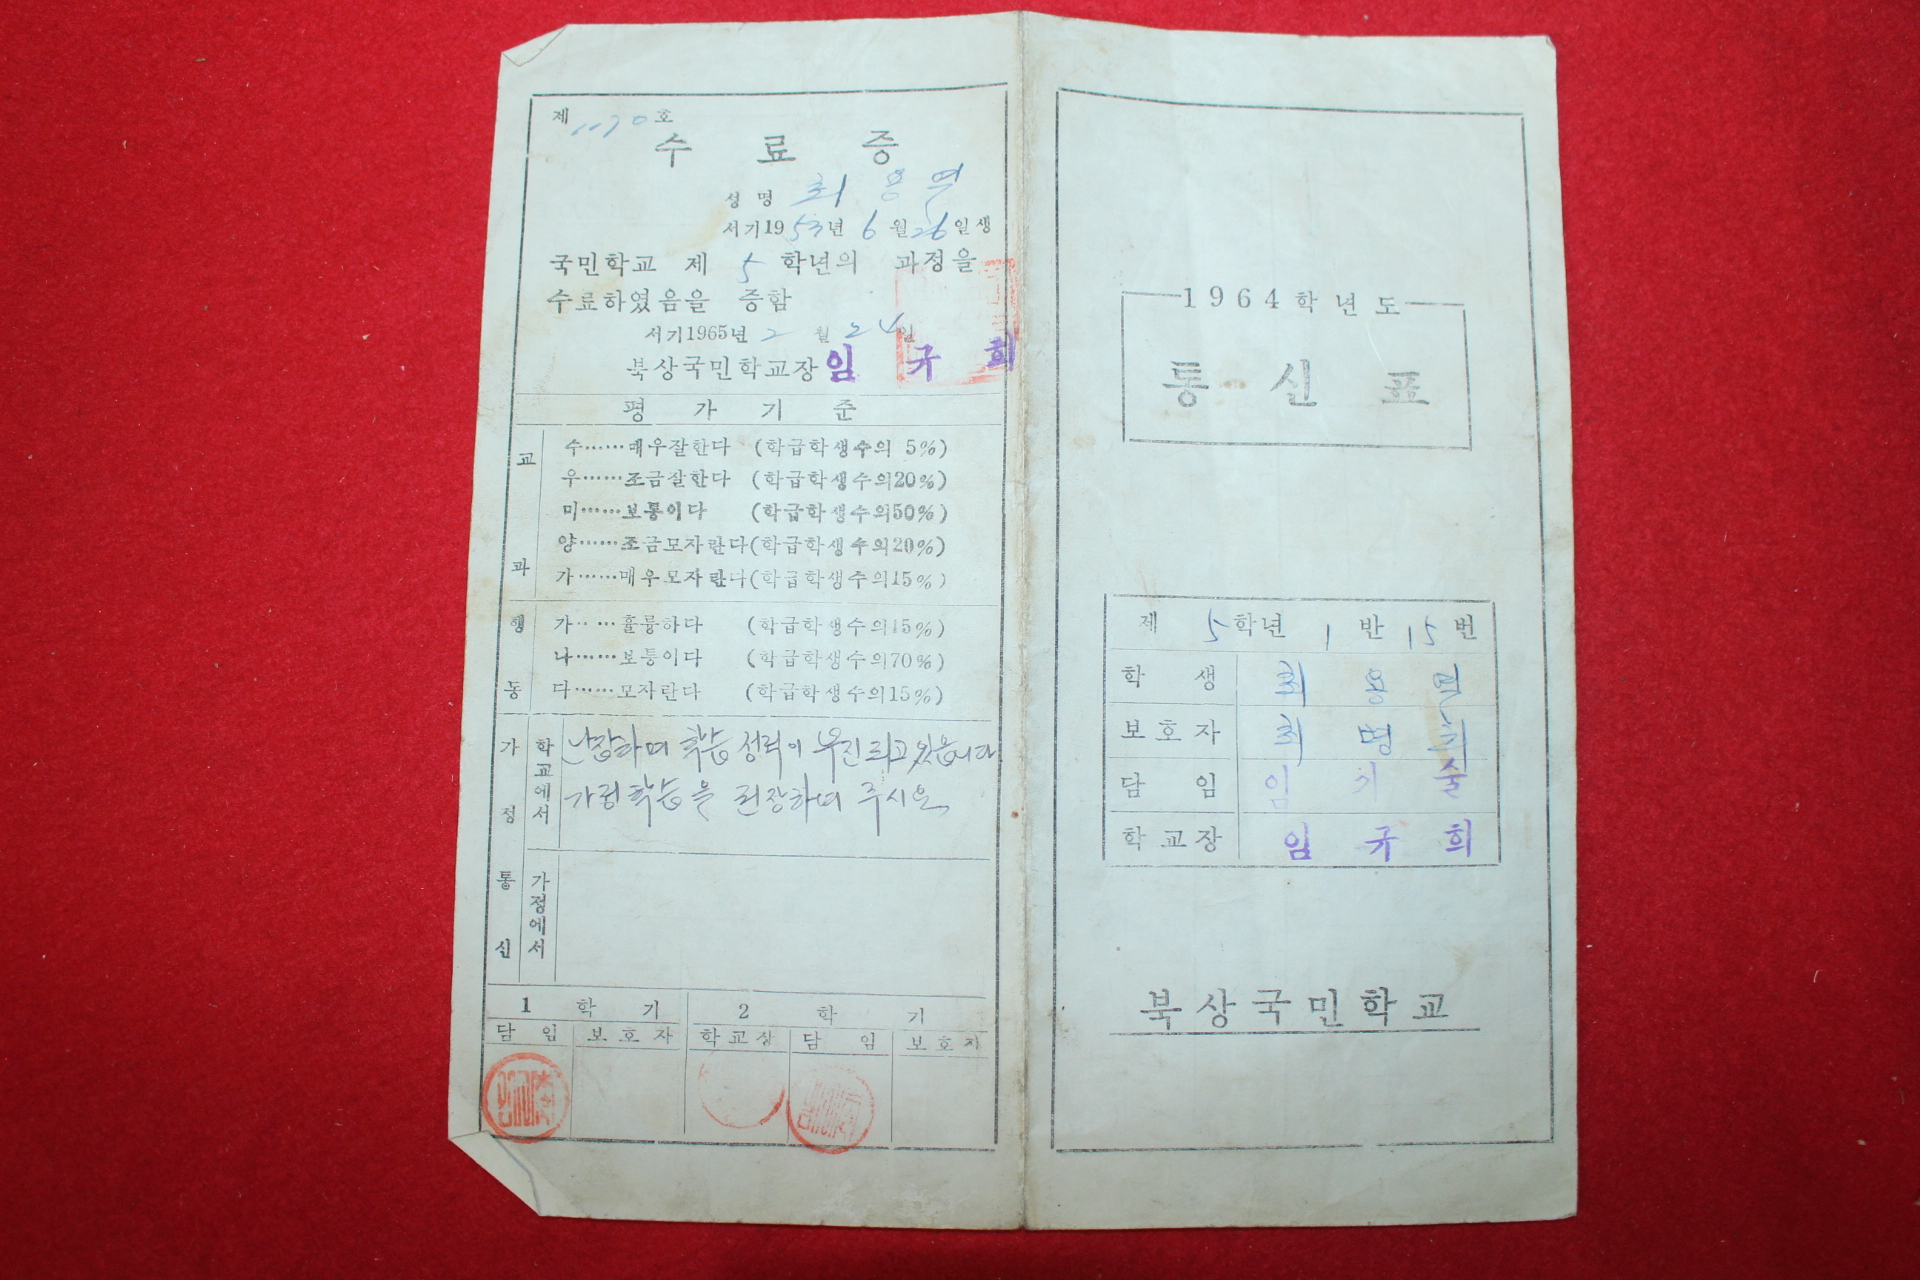 제 1170 호
수 료 증
성 명 최 용
서기 1953년 6월 26일생
국민학교 제 5 학년의 과정을
수료하였음을 증함
서기 1965년 2월 24일
북상국민학교장 임 규 희
평 가 기 준
교 과
수……매우잘한다 (학급학생수의 5%)
우……조금잘한다 (학급학생수의20%)
미……보통이다 (학급학생수의50%)
양……조금모자란다(학급학생수의20%)
가……매우모자란다(학급학생수의15%)
행 동
가……훌륭하다 (학급학생수의15%)
나……보통이다 (학급학생수의70%)
다……모자란다 (학급학생수의15%)
가 정 통 신
학교에서
학습 성적이 부진되고 있읍니다
가정학습을 권장하여 주시요.
가정에서
1 학 기
2 학 기
담 임 보 호 자 학교장 담 임 보 호 자
1964학년도
통 신 표
제 5학년 1 반 15 번
학 생 최 용
보호자 최 병
담 임 임 기 술
학교장 임 규 희
북상국민학교